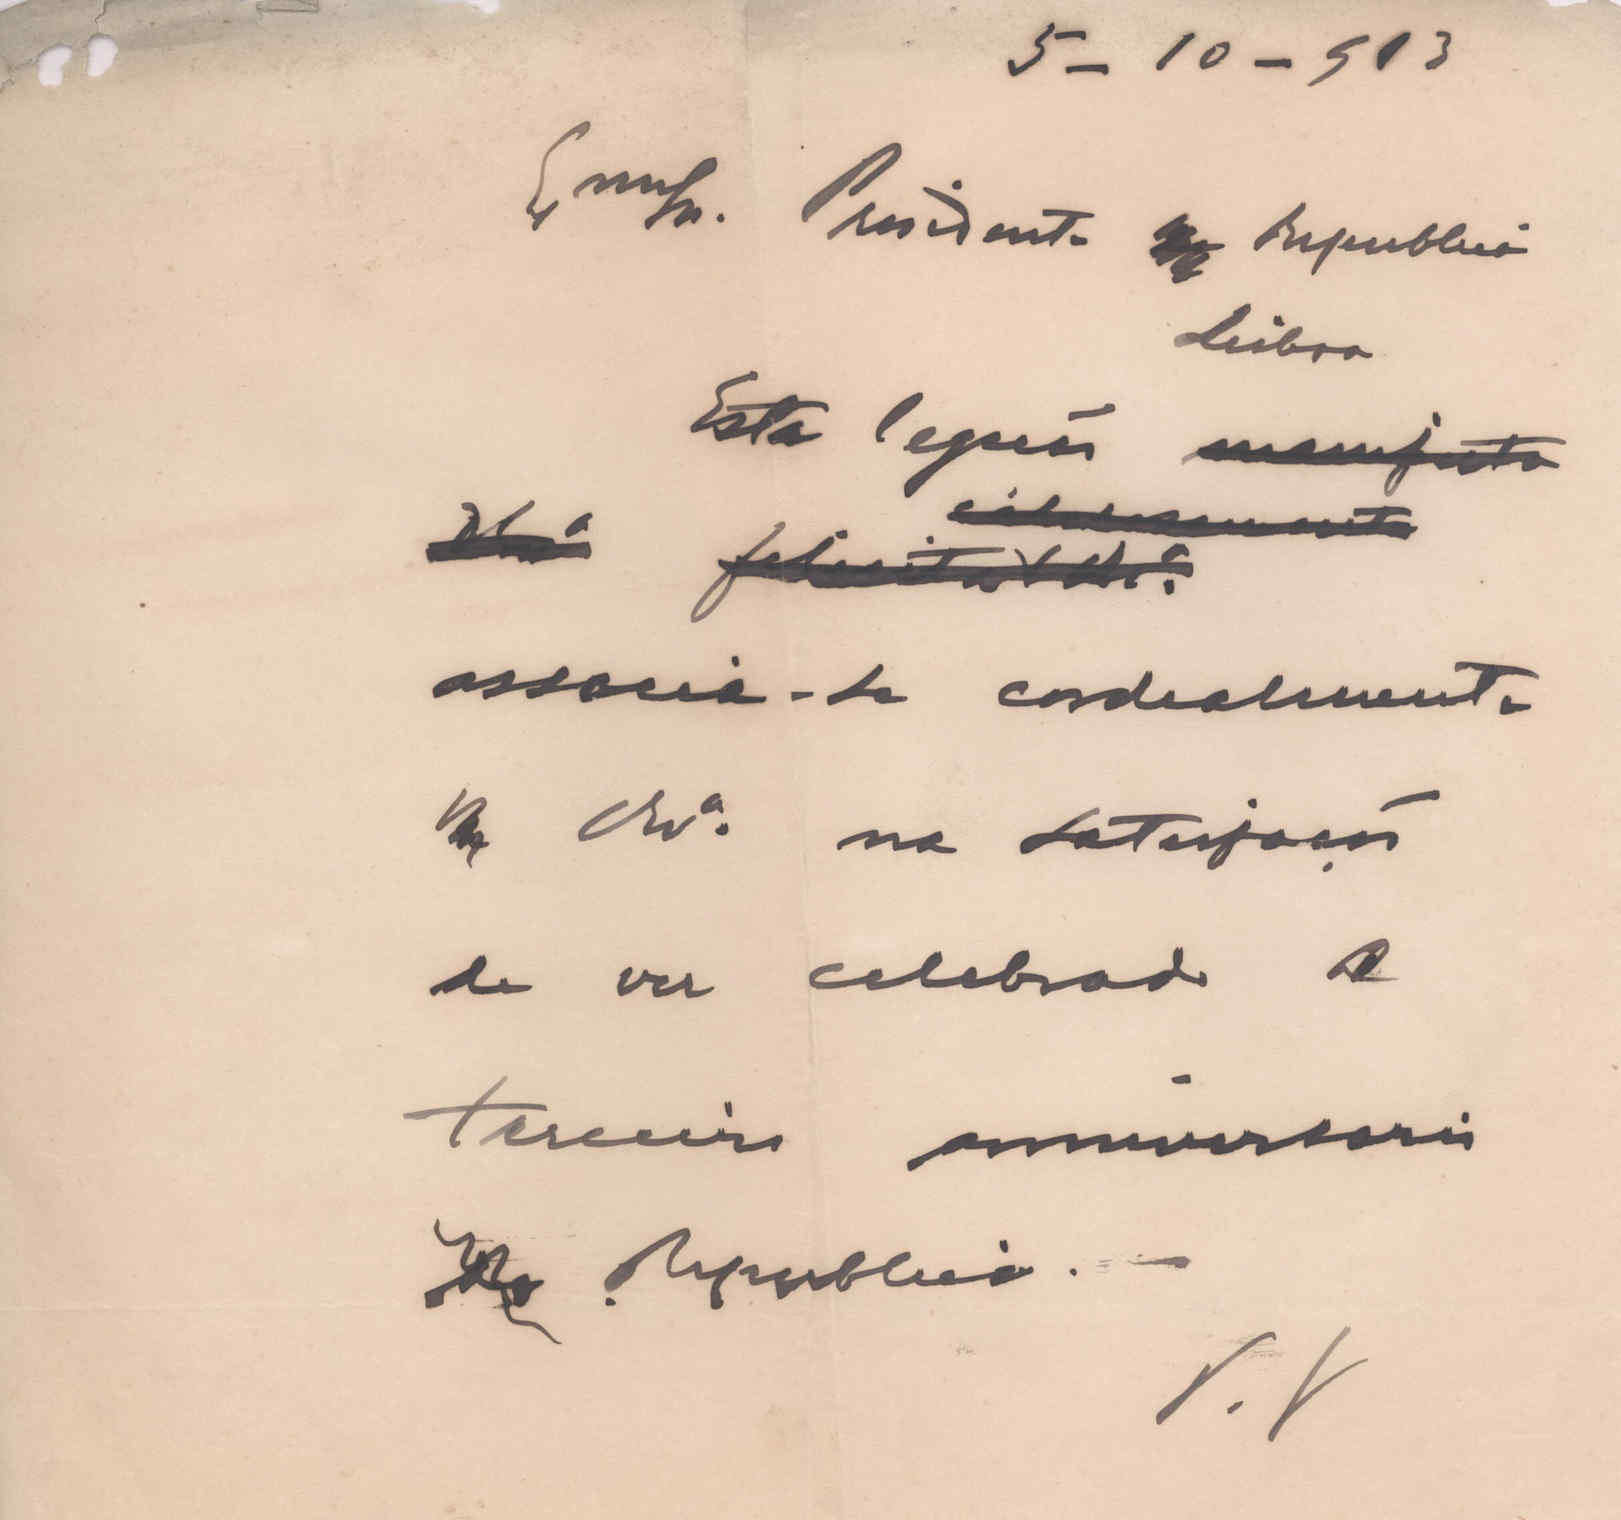 5-10-913
Exmo Sr. Presidente da Republica
Lisboa
Esta legação manifesta
calorosamente
felicita V. Exª.
associa-se cordealmente
a V. Exª. na satisfação
de ver celebrado o
terceiro anniversario
da Republica.
V. V